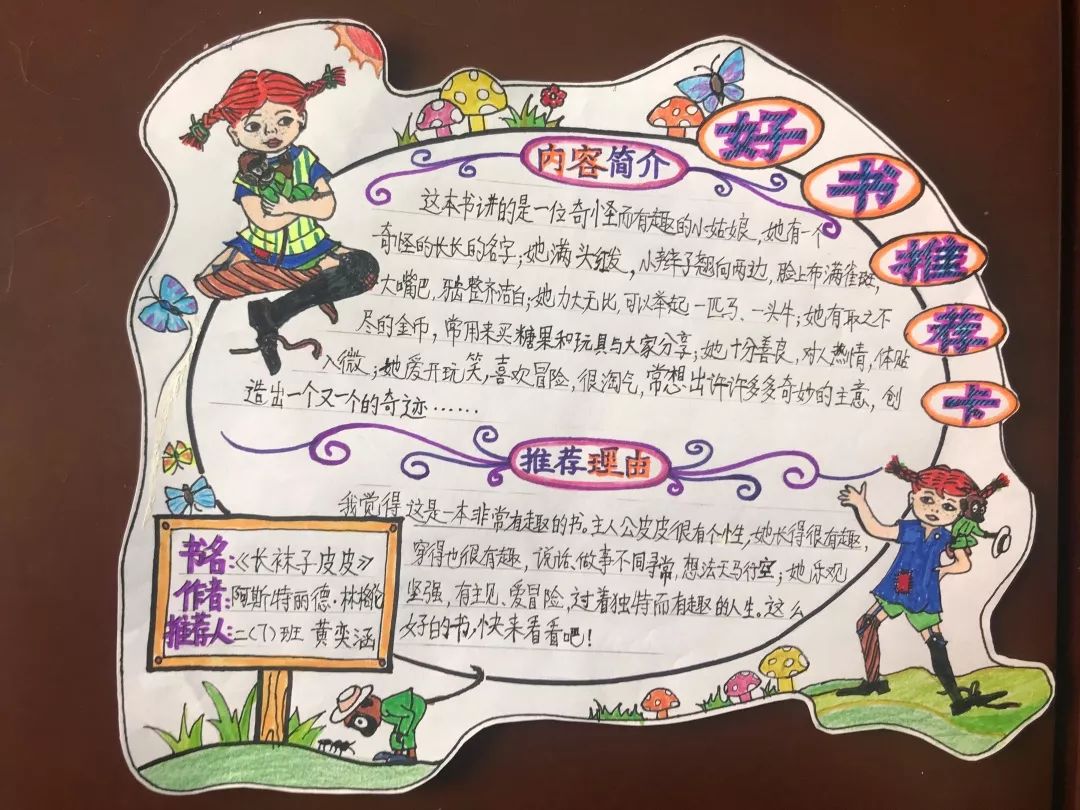 好书推荐卡
内容简介
这本书讲的是一位奇怪而有趣的小姑娘，她有一个
奇怪的长长的名字；她满头红发，小辫子翘向两边，脸上布满雀斑，
大嘴巴，牙齿整齐洁白；她力大无比，可以举起一匹马、一头牛；她有取之不
尽的金币，常用来买糖果和玩具与大家分享；她十分善良，对人热情，体贴
入微；她爱开玩笑，喜欢冒险，很淘气，常想出许许多多奇妙的主意，创
造出一个又一个的奇迹……
推荐理由
我觉得这是一本非常有趣的书。主人公皮皮很有个性，她长得很有趣，
穿得也很有趣，说话、做事不同寻常，想法天马行空；她乐观
坚强，有主见、爱冒险，过着独特而有趣的人生。这么
好的书，快来看看吧！
书名：《长袜子皮皮》
作者：阿斯特丽德·林格伦
推荐人：二（7）班 黄奕涵